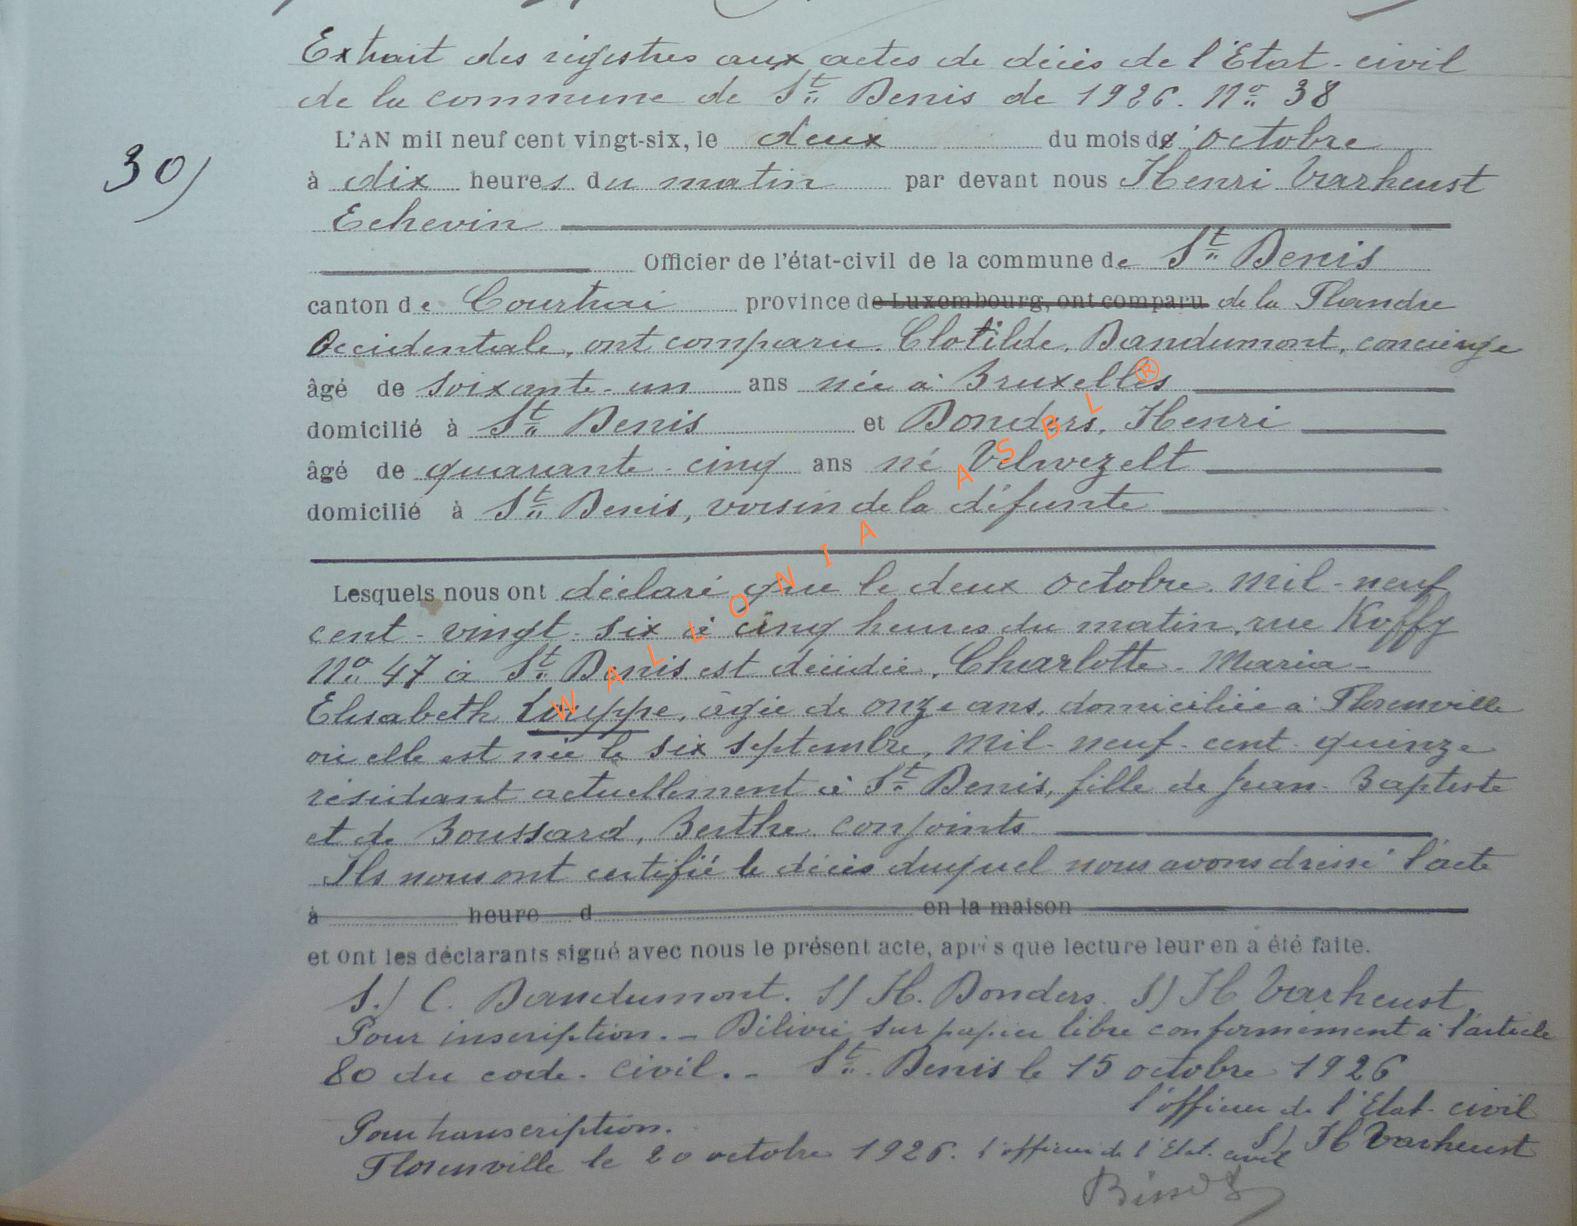 Extrait des registres aux actes de décès de l'Etat-civil
de la commune de St. Denis de 1926. No. 38
30)
L'AN mil neuf cent vingt-six, le deux du mois d'octobre
à dix heures du matin par devant nous Henri Varheust
Echevin
Officier de l'état-civil de la commune de St. Denis
canton de Courtrai province de Luxembourg, ont comparu de la Flandre
Occidentale, ont comparu. Clotilde, Dandumont, concierge
âgé de soixante-un ans née à Bruxelles
domicilié à St. Denis et Donders, Henri
âgé de quarante-cinq ans né Velwezelt
domicilié à St. Denis, voisin de la défunte
Lesquels nous ont déclaré que le deux octobre mil-neuf
cent-vingt-six à cinq heures du matin, rue Koffy
No. 47 à St. Denis est décédée, Charlotte-Maria-
Elisabeth Louppe, âgée de onze ans, domiciliée à Florenville
où elle est née le six septembre, mil-neuf-cent-quinze
résidant actuellement à St. Denis, fille de Jean-Baptiste
et de Boussard, Berthe. conjoints
Ils nous ont certifié le décès duquel nous avons dressé l'acte
à heure d en la maison
et ont les déclarants signé avec nous le présent acte, après que lecture leur en a été faite.
S.) C. Dandumont. S) H. Donders. S) H Varheust
Pour inscription.- Délivré sur papier libre conformément à l'article
80 du code. civil.- St. Denis le 15 octobre 1926
l'officier de l'Etat-civil
Pour transcription. S) H Varheust
Florenville le 20 octobre 1926. l'officier de l'Etat-civil
WALLONIA ASBL ®